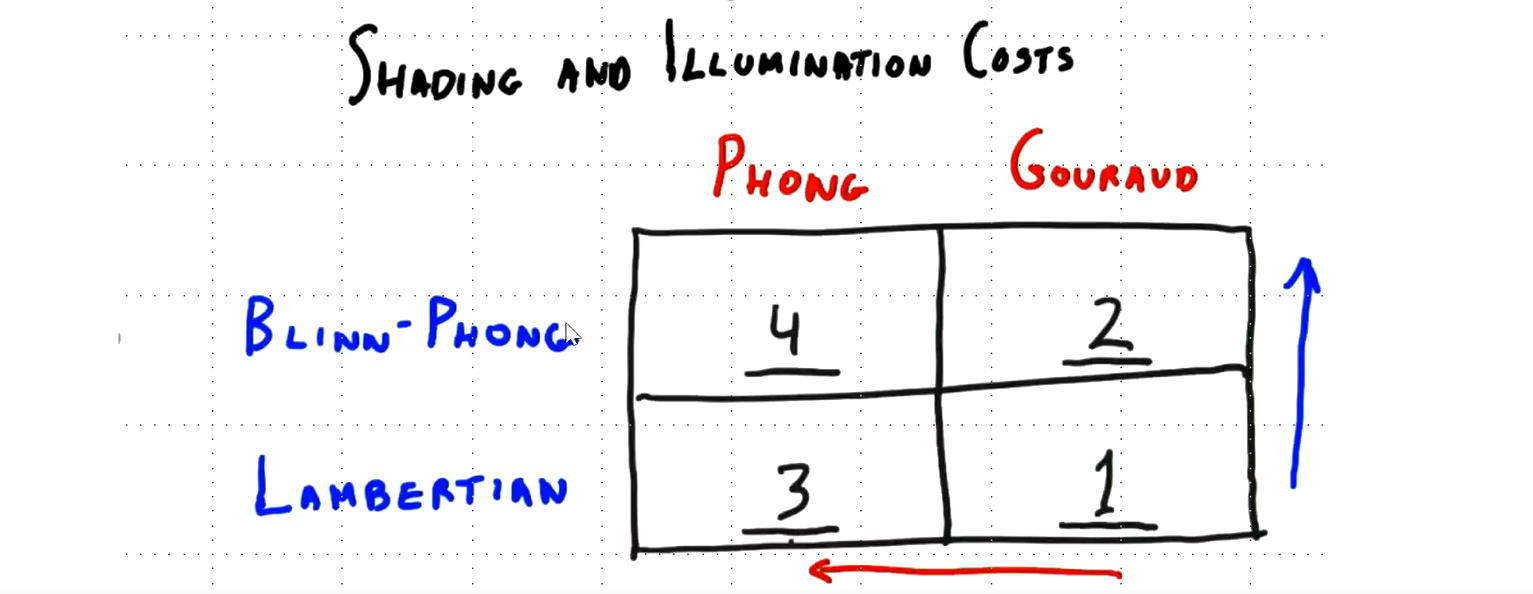 SHADING AND ILLUMINATION COSTS
PHONG GOURAUD
BLINN-PHONG 4 2
LAMBERTIAN 3 1